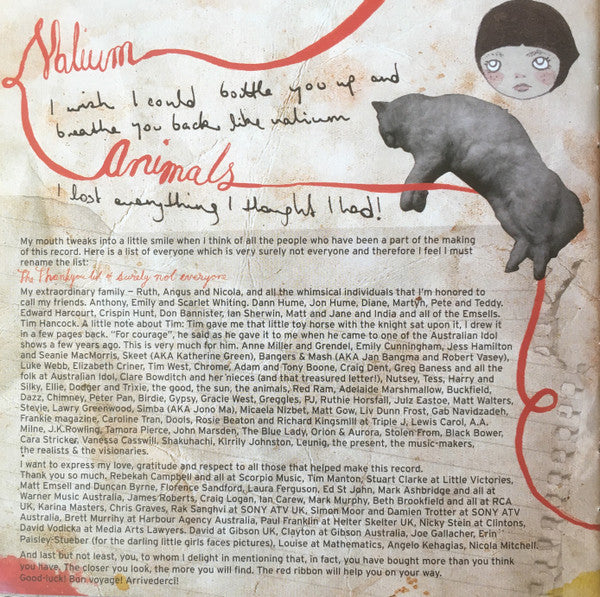 Valium
I wish I could bottle you up and
breathe you back like valium
Animals
I lost everything I thought I had!
My mouth tweaks into a little smile when I think of all the people who have been a part of the making
of this record. Here is a list of everyone which is very surely not everyone and therefore I feel I must
rename the list:
The Thankyou list & surely not everyone
My extraordinary family – Ruth, Angus and Nicola, and all the whimsical individuals that I'm honored to
call my friends. Anthony, Emily and Scarlet Whiting. Dann Hume, Jon Hume, Diane, Martyn, Pete and Teddy.
Edward Harcourt, Crispin Hunt, Don Bannister, Ian Sherwin, Matt and Jane and India and all of the Emsells.
Tim Hancock. A little note about Tim: Tim gave me that little toy horse with the knight sat upon it, I drew it
in a few pages back. "For courage", he said as he gave it to me when he came to one of the Australian Idol
shows a few years ago. This is very much for him. Anne Miller and Grendel, Emily Cunningham, Jess Hamilton
and Seanie MacMorris, Skeet (AKA Katherine Green), Bangers & Mash (AKA Jan Bangma and Robert Vasey),
Luke Webb, Elizabeth Criner, Tim West, Chrome, Adam and Tony Boone, Craig Dent, Greg Baness and all the
folk at Australian Idol, Clare Bowditch and her nieces (and that treasured letter!), Nutsey, Tess, Harry and
Silky, Ellie, Dodger and Trixie, the good, the sun, the animals, Red Ram, Adelaide Marshmallow, Buckfield,
Dazz, Chimney, Peter Pan, Birdie, Gypsy, Gracie West, Greggles, PJ, Ruthie Horsfall, Julz Eastoe, Matt Walters,
Stevie, Lawry Greenwood, Simba (AKA Jono Ma), Micaela Nizbet, Matt Gow, Liv Dunn Frost, Gab Navidzadeh,
Frankie magazine, Caroline Tran, Dools, Rosie Beaton and Richard Kingsmill at Triple J, Lewis Carol, A.A.
Milne, J.K.Rowling, Tamora Pierce, John Marsden, The Blue Lady, Orion & Aurora, Stolen From, Black Bower,
Cara Stricker, Vanessa Casswill, Shakuhachi, Kirrily Johnston, Leunig, the present, the music-makers,
the realists & the visionaries.
I want to express my love, gratitude and respect to all those that helped make this record.
Thank you so much, Rebekah Campbell and all at Scorpio Music, Tim Manton, Stuart Clarke at Little Victories,
Matt Emsell and Duncan Byrne, Florence Sandford, Laura Ferguson, Ed St John, Mark Ashbridge and all at
Warner Music Australia, James Roberts, Craig Logan, Ian Carew, Mark Murphy, Beth Brookfield and all at RCA
UK, Karina Masters, Chris Graves, Rak Sanghvi at SONY ATV UK, Simon Moor and Damien Trotter at SONY ATV
Australia, Brett Murrihy at Harbour Agency Australia, Paul Franklin at Helter Skelter UK, Nicky Stein at Clintons,
David Vodicka at Media Arts Lawyers. David at Gibson UK, Clayton at Gibson Australia, Joe Gallacher, Erin
Paisley-Stueber (for the darling little girls faces pictures), Louise at Mathematics, Angelo Kehagias, Nicola Mitchell.
And last but not least, you, to whom I delight in mentioning that, in fact, you have bought more than you think
you have. The closer you look, the more you will find. The red ribbon will help you on your way.
Good-luck! Bon voyage! Arrivederci!